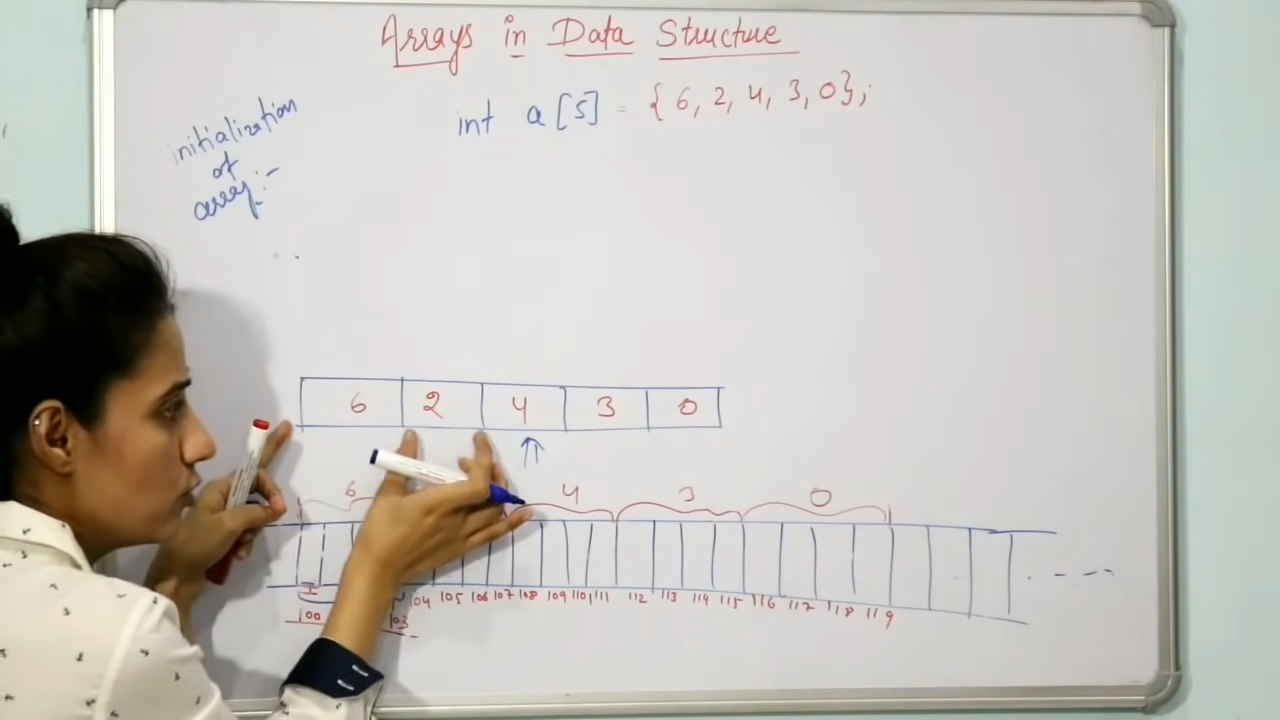 Arrays in Data Structure
int a[5] = {6, 2, 4, 3, 0};
initialization
of
array:-
6 2 4 3 0
6 4 3 0
104 105 106 107 108 109 110 111 112 113 114 115 116 117 118 119
100 103